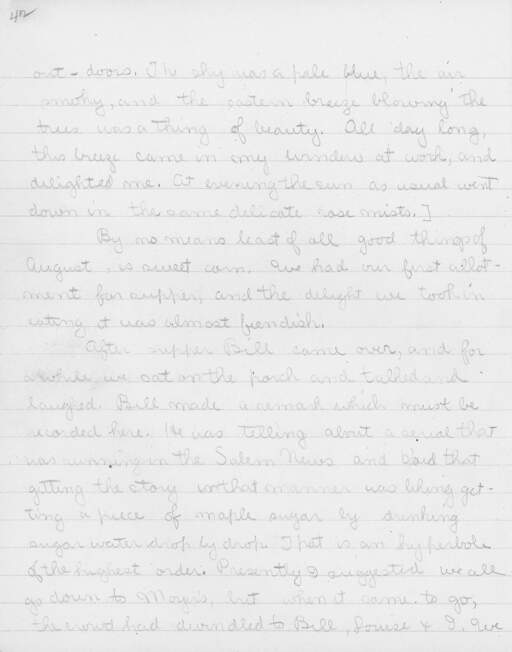 42
out-doors. The sky was a pale blue, the air
smoky, and the eastern breeze blowing the
trees was a thing of beauty. All day long,
this breeze came in my window at work, and
delighted me. At evening the sun as usual went
down in the same delicate rose mists.]
By no means least of all good things of
August, is sweet corn. We had our first allot-
ment for supper, and the delight we took in
eating it was almost fiendish.
After supper Bill came over, and for
awhile we sat on the porch and talked and
laughed. Bill made a remark which must be
recorded here. He was telling about a serial that
was running in the Salem News and said that
getting the story in that manner was liking get-
ting a piece of maple sugar by drinking
sugar water drop by drop. That is an hyperbole
of the highest order. Presently I suggested we all
go down to Moyer's, but when it came to go,
the crowd had dwindled to Bill, Louise & I. We